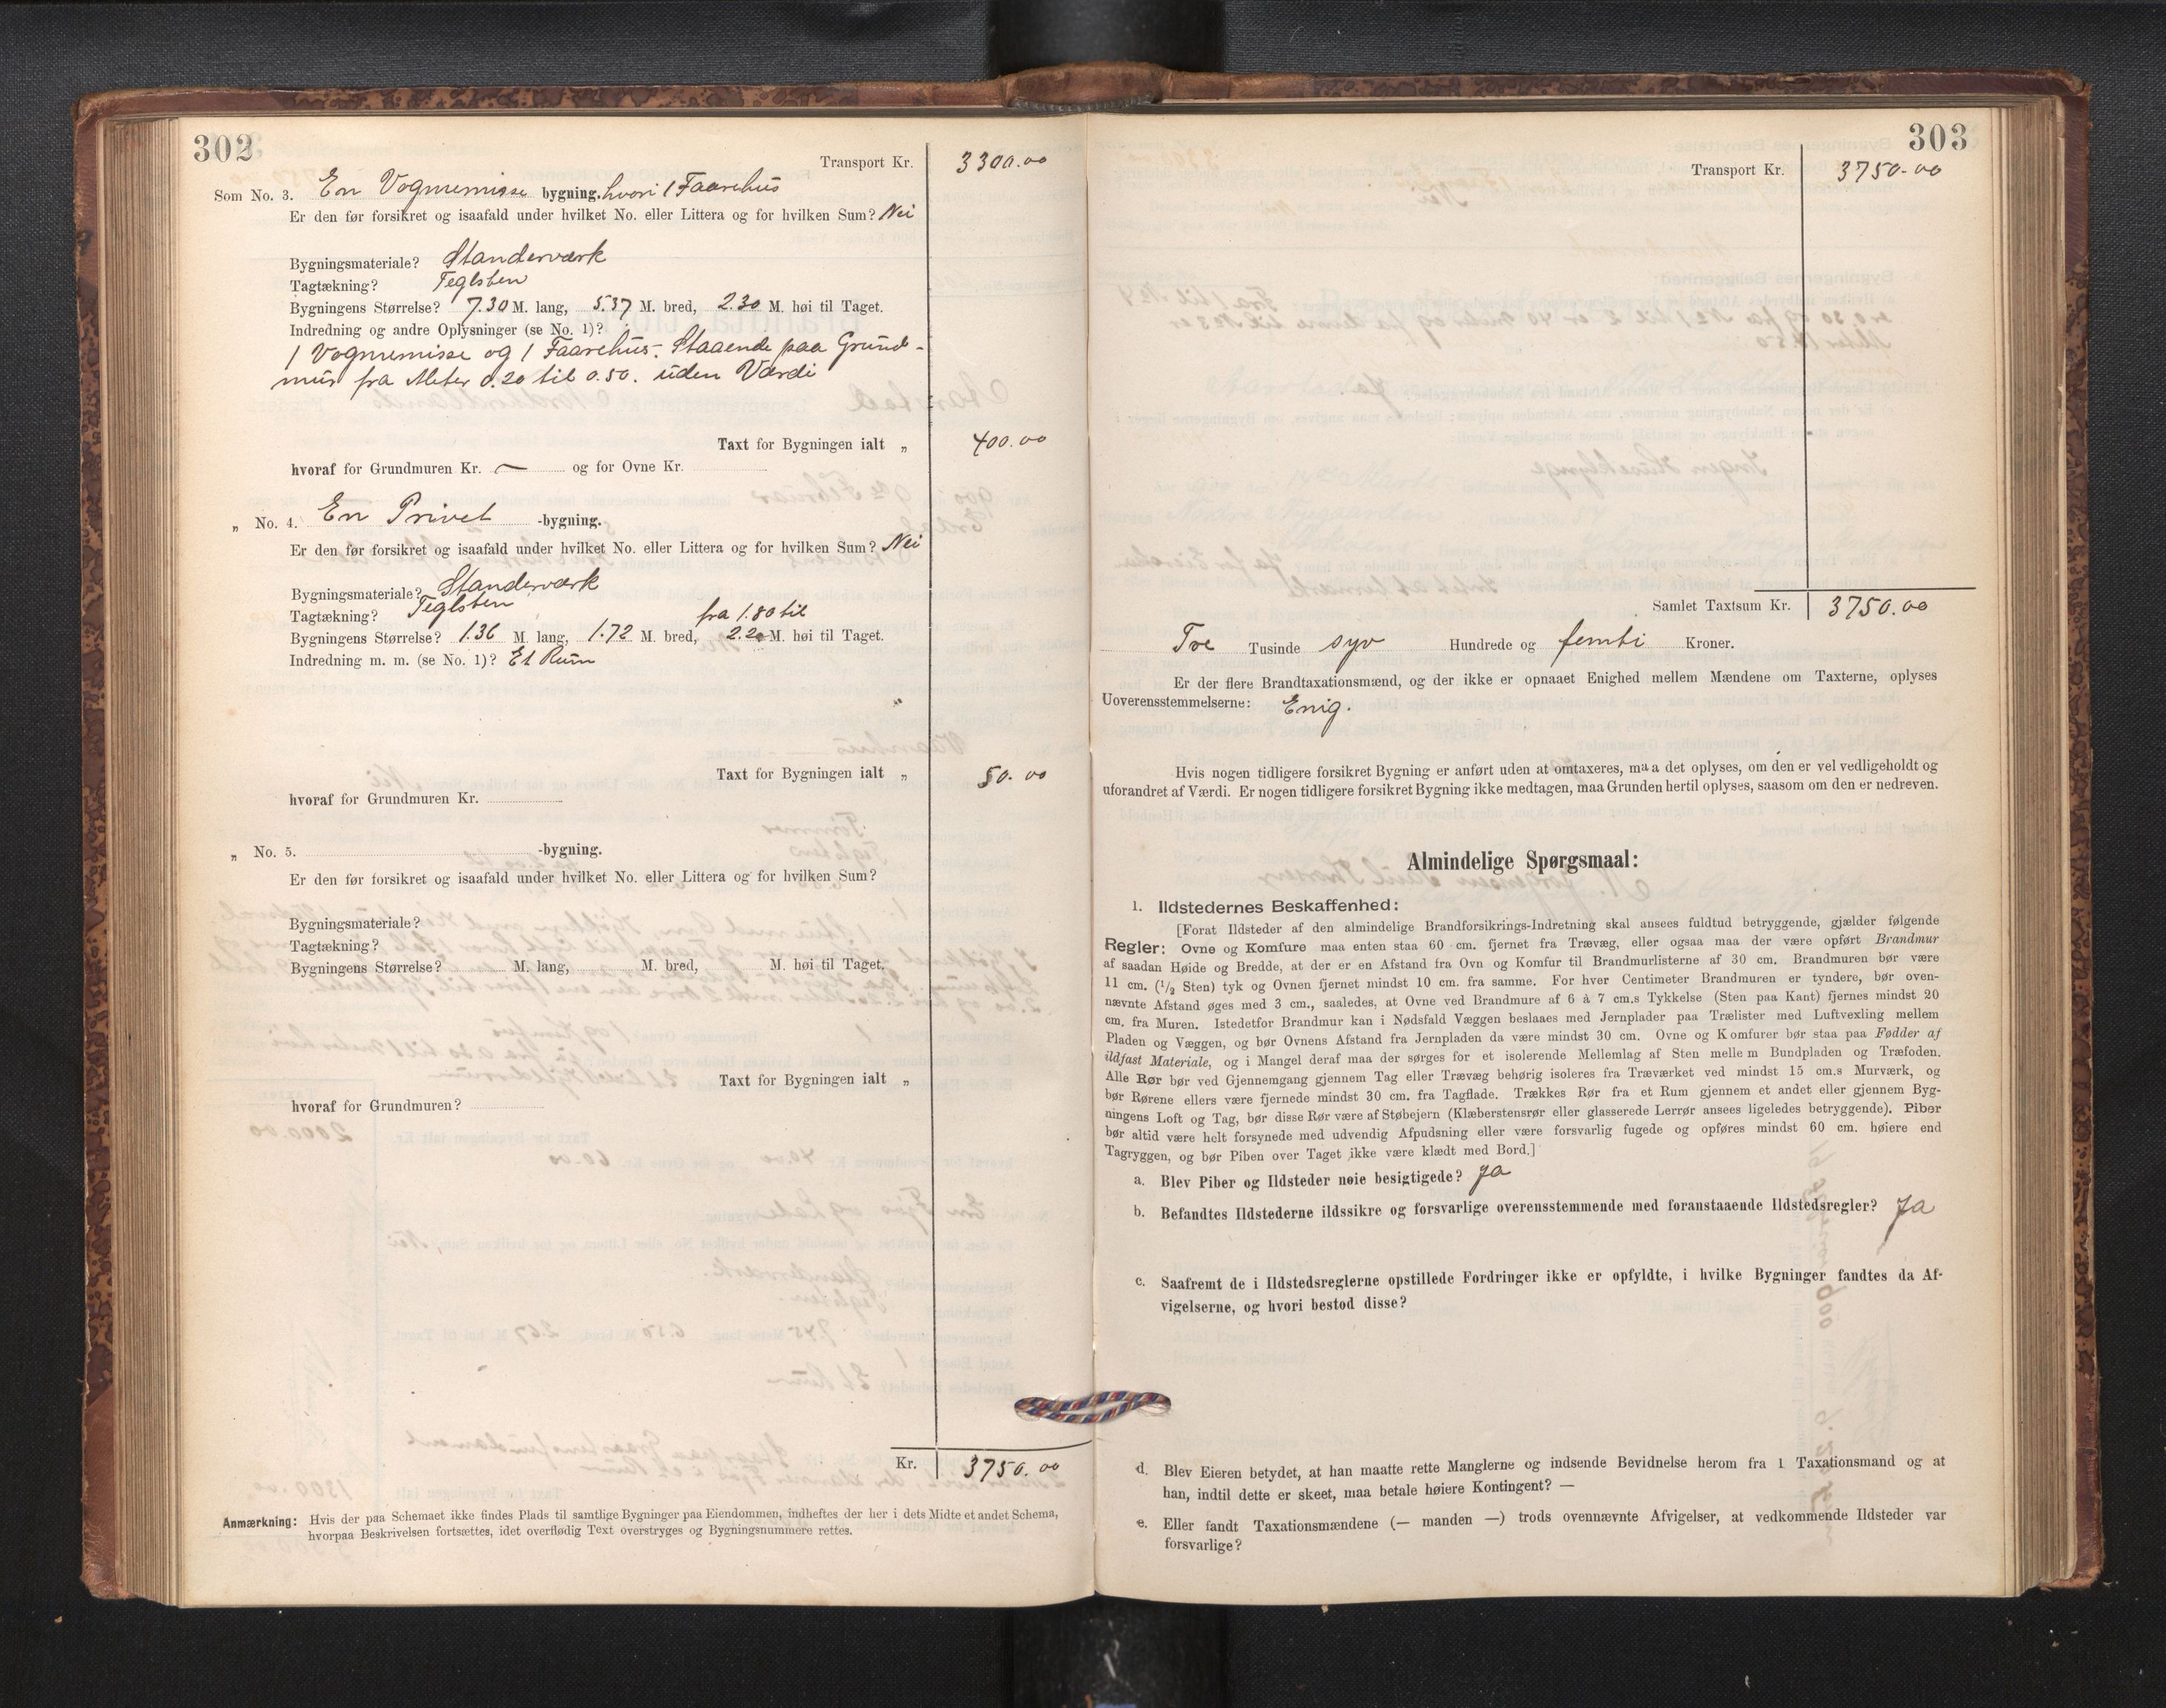 302
Transport Kr. 3300.00
Som No. 3. En Vognremisse bygning. hvori 1 Faarehus
Er den før forsikret og isaafald under hvilket No. eller Littera og for hvilken Sum? Nei
Bygningsmateriale? Standerværk
Tagtækning? Teglsten
Bygningens Størrelse? 7.30 M. lang, 5.37 M. bred, 2.30 M. høi til Taget.
Indredning og andre Oplysninger (se No. 1)?
1 Vognremisse og 1 Faarehus. Staaende paa Grund-
mur fra Meter 0.20 til 0.50. uden Værdi
Taxt for Bygningen ialt „ 400.00
hvoraf for Grundmuren Kr. — og for Ovne Kr.
„ No. 4. En Privet -bygning.
Er den før forsikret og isaafald under hvilket No. eller Littera og for hvilken Sum? Nei
Bygningsmateriale? Standerværk
Tagtækning? Teglsten fra 1.80 til
Bygningens Størrelse? 1.36 M. lang, 1.72 M. bred, 2.20 M. høi til Taget.
Indredning m. m. (se No. 1)? Et Rum
Taxt for Bygningen ialt „ 50.00
hvoraf for Grundmuren Kr.
„ No. 5. -bygning.
Er den før forsikret og isaafald under hvilket No. eller Littera og for hvilken Sum?
Bygningsmateriale?
Tagtækning?
Bygningens Størrelse? M. lang, M. bred, M. høi til Taget.
Taxt for Bygningen ialt „
hvoraf for Grundmuren?
Kr. 3750.00
Anmærkning: Hvis der paa Schemaet ikke findes Plads til samtlige Bygninger paa Eiendommen, indheftes der her i dets Midte et andet Schema,
hvorpaa Beskrivelsen fortsættes, idet overflødig Text overstryges og Bygningsnummere rettes.
303
Transport Kr. 3750.00
Samlet Taxtsum Kr. 3750.00
Tre Tusinde syv Hundrede og femti Kroner.
Er der flere Brandtaxationsmænd, og der ikke er opnaaet Enighed mellem Mændene om Taxterne, oplyses
Uoverensstemmelserne: Enig.
Hvis nogen tidligere forsikret Bygning er anført uden at omtaxeres, maa det oplyses, om den er vel vedligeholdt og
uforandret af Værdi. Er nogen tidligere forsikret Bygning ikke medtagen, maa Grunden hertil oplyses, saasom om den er nedreven.
Almindelige Spørgsmaal:
1. Ildstedernes Beskaffenhed:
[Forat Ildsteder af den almindelige Brandforsikrings-Indretning skal ansees fuldtud betryggende, gjælder følgende
Regler: Ovne og Komfure maa enten staa 60 cm. fjernet fra Trævæg, eller ogsaa maa der være opført Brandmur
af saadan Høide og Bredde, at der er en Afstand fra Ovn og Komfur til Brandmurlisterne af 30 cm. Brandmuren bør være
11 cm. (1/2 Sten) tyk og Ovnen fjernet mindst 10 cm. fra samme. For hver Centimeter Brandmuren er tyndere, bør oven-
nævnte Afstand øges med 3 cm., saaledes, at Ovne ved Brandmure af 6 à 7 cm.s Tykkelse (Sten paa Kant) fjernes mindst 20
cm. fra Muren. Istedetfor Brandmur kan i Nødsfald Væggen beslaaes med Jernplader paa Trælister med Luftvexling mellem
Pladen og Væggen, og bør Ovnens Afstand fra Jernpladen da være mindst 30 cm. Ovne og Komfurer bør staa paa Fødder af
ildfast Materiale, og i Mangel deraf maa der sørges for et isolerende Mellemlag af Sten mellem Bundpladen og Træfoden.
Alle Rør bør ved Gjennemgang gjennem Tag eller Trævæg behørig isoleres fra Træværket ved mindst 15 cm.s Murværk, og
bør Rørene ellers være fjernede mindst 30 cm. fra Tagflade. Trækkes Rør fra et Rum gjennem et andet eller gjennem Byg-
ningens Loft og Tag, bør disse Rør være af Støbejern (Klæberstensrør eller glasserede Lerrør ansees ligeledes betryggende). Piber
bør altid være helt forsynede med udvendig Afpudsning eller være forsvarlig fugede og opføres mindst 60 cm. høiere end
Tagryggen, og bør Piben over Taget ikke være klædt med Bord.]
a. Blev Piber og Ildsteder nøie besigtigede? Ja
b. Befandtes Ildstederne ildssikre og forsvarlige overensstemmende med foranstaaende Ildstedsregler? Ja
c. Saafremt de i Ildstedsreglerne opstillede Fordringer ikke er opfyldte, i hvilke Bygninger fandtes da Af-
vigelserne, og hvori bestod disse?
d. Blev Eieren betydet, at han maatte rette Manglerne og indsende Bevidnelse herom fra 1 Taxationsmand og at
han, indtil dette er skeet, maa betale høiere Kontingent? —
e. Eller fandt Taxationsmændene (— manden —) trods ovennævnte Afvigelser, at vedkommende Ildsteder var
forsvarlige?